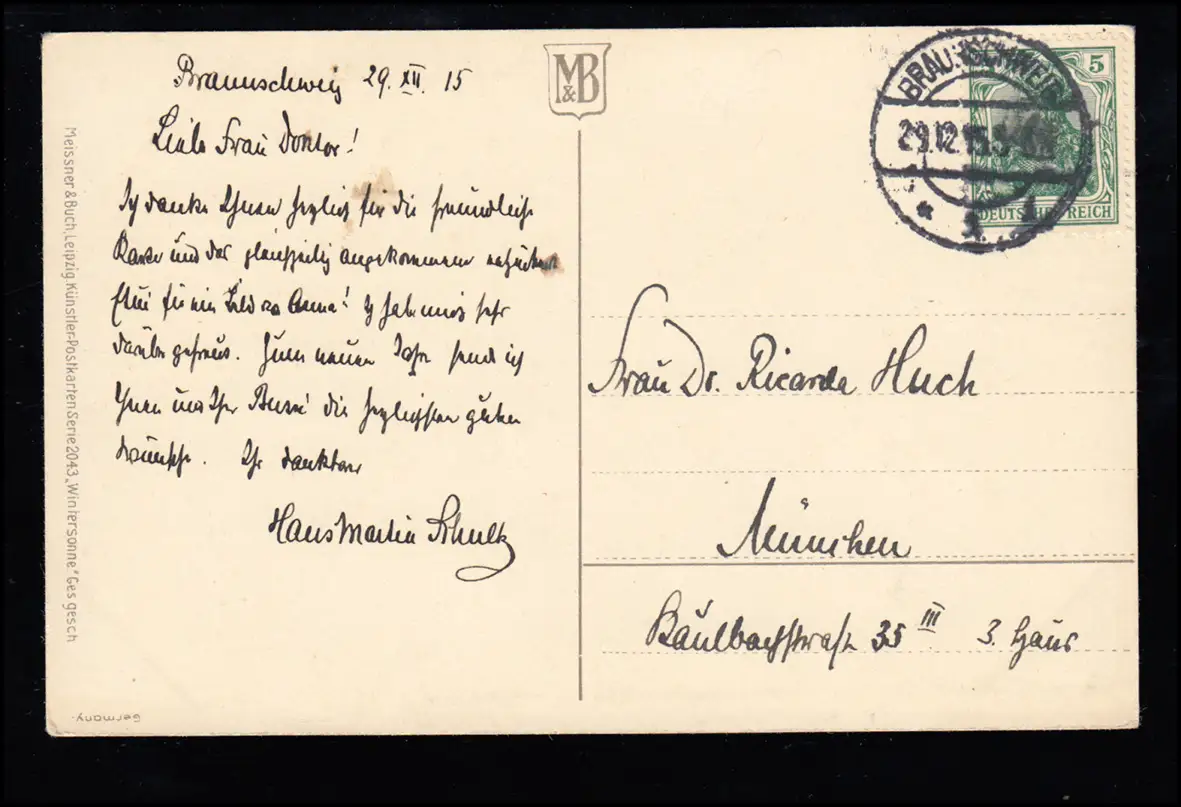 Braunschweig 29. XII. 15
Liebe Frau Doktor!
Ich danke Ihnen herzlich für die freundliche
Karte und das gleichzeitig angekommene
Etui für ein Bild! Ich habe mich sehr
darüber gefreut. Zum neuen Jahr sende ich
Ihnen und Ihr Bussi die herzlichsten guten
Wünsche. Ihr dankbarer
Hans Martin Schultz
M&B
BRAUNSCHWEIG
29.12.15
*
5
DEUTSCHES REICH
Frau Dr. Ricarda Huch
München
Kaulbachstraße 35 III 3. Haus
Meissner & Buch, Leipzig. Künstler-Postkarten Serie 2043 „Wintersonne" Ges. gesch
Germany.